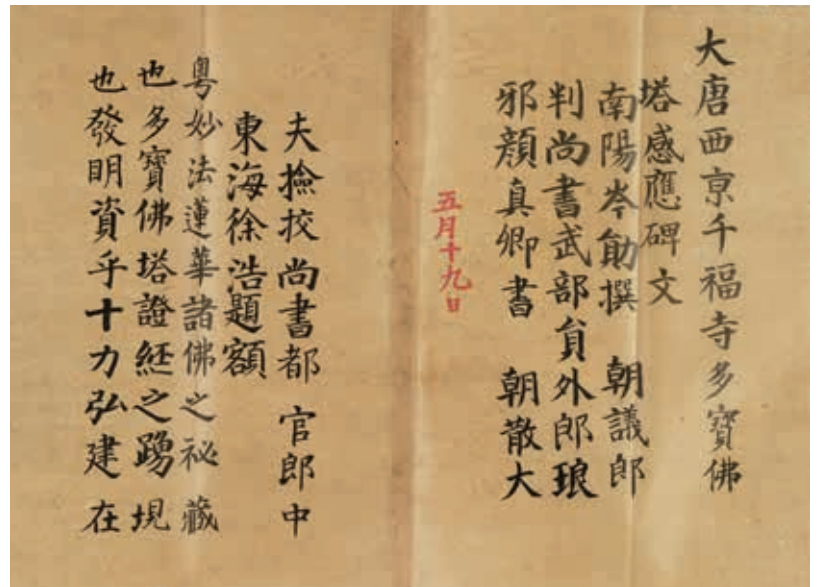 大唐西京千福寺多寶佛
塔感應碑文
南陽岑勛撰 朝議郎
判尚書武部員外郎琅
邪顏真卿書 朝散大
五月十九日
夫撿挍尚書都官郎中
東海徐浩題額
粵妙法蓮華諸佛之祕藏
也多寶佛塔證經之踴現
也發明資乎十力弘建在